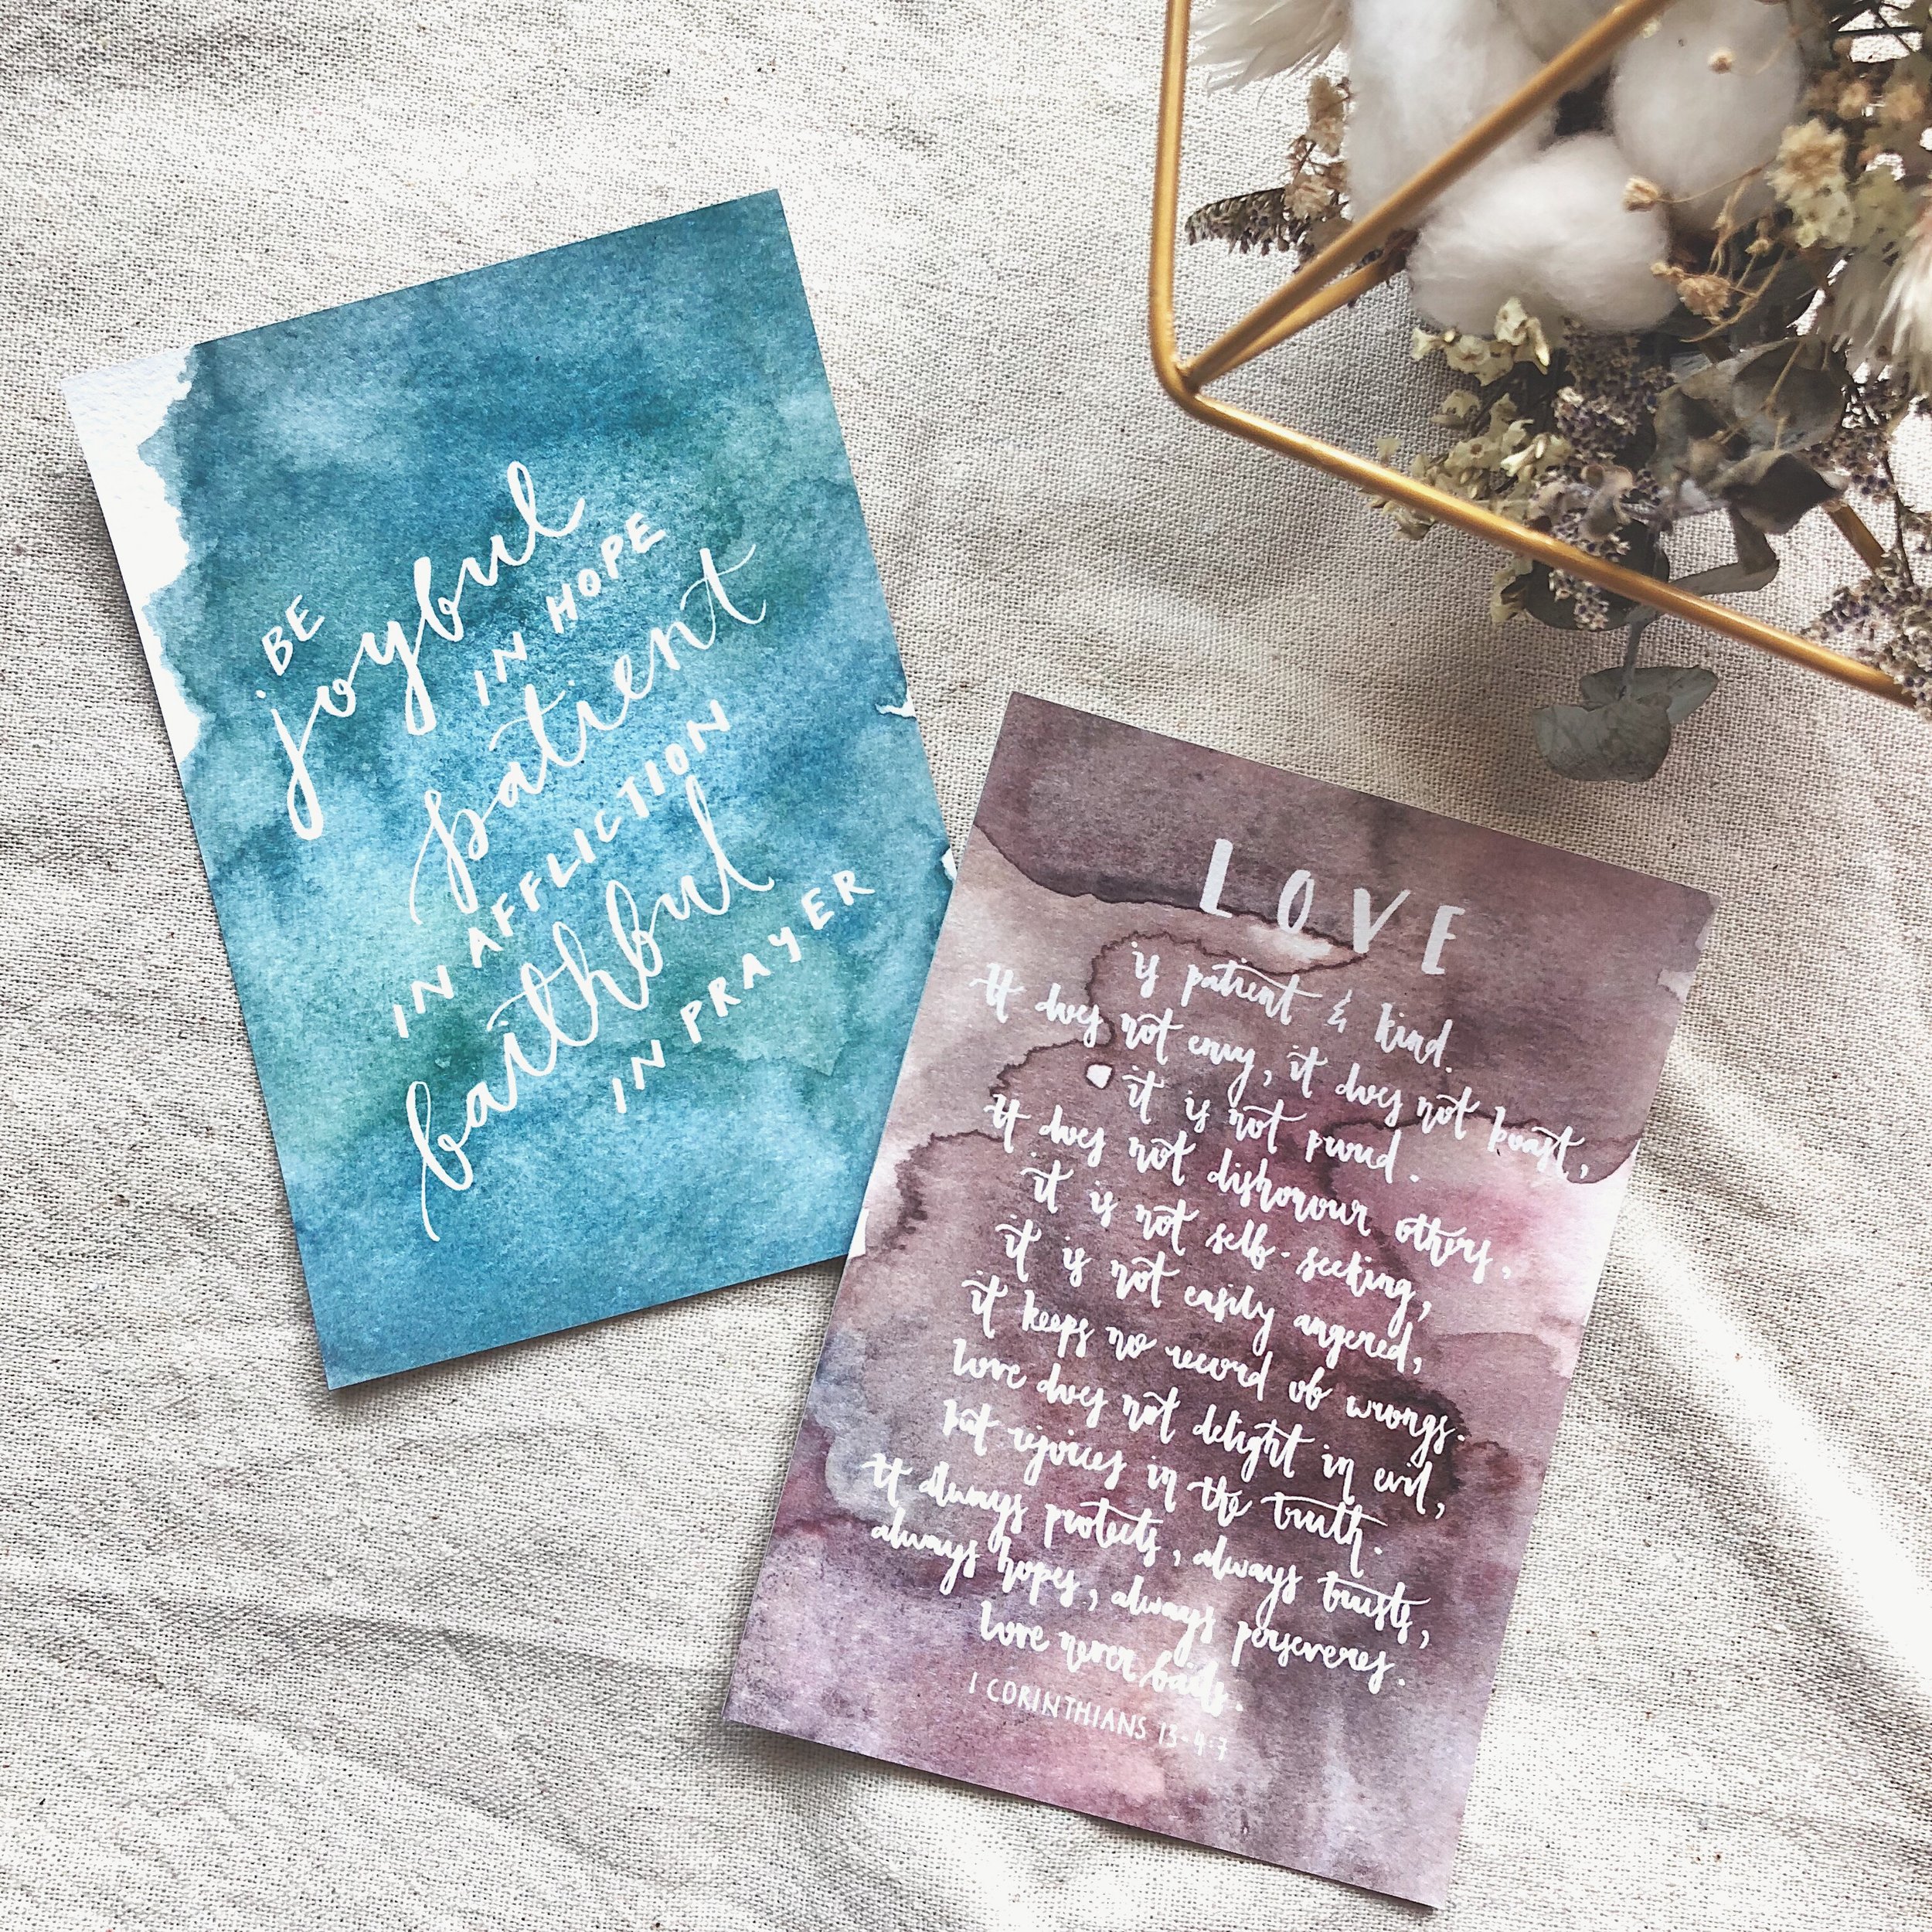 BE
joyful
IN HOPE
patient
IN AFFLICTION
faithful
IN PRAYER
LOVE
is patient & kind.
It does not envy, it does not boast,
it is not proud.
It does not dishonour others,
it is not self-seeking,
it is not easily angered,
it keeps no record of wrongs.
Love does not delight in evil,
but rejoices in the truth.
It always protects, always trusts,
always hopes, always perseveres.
Love never fails.
1 CORINTHIANS 13-4:7